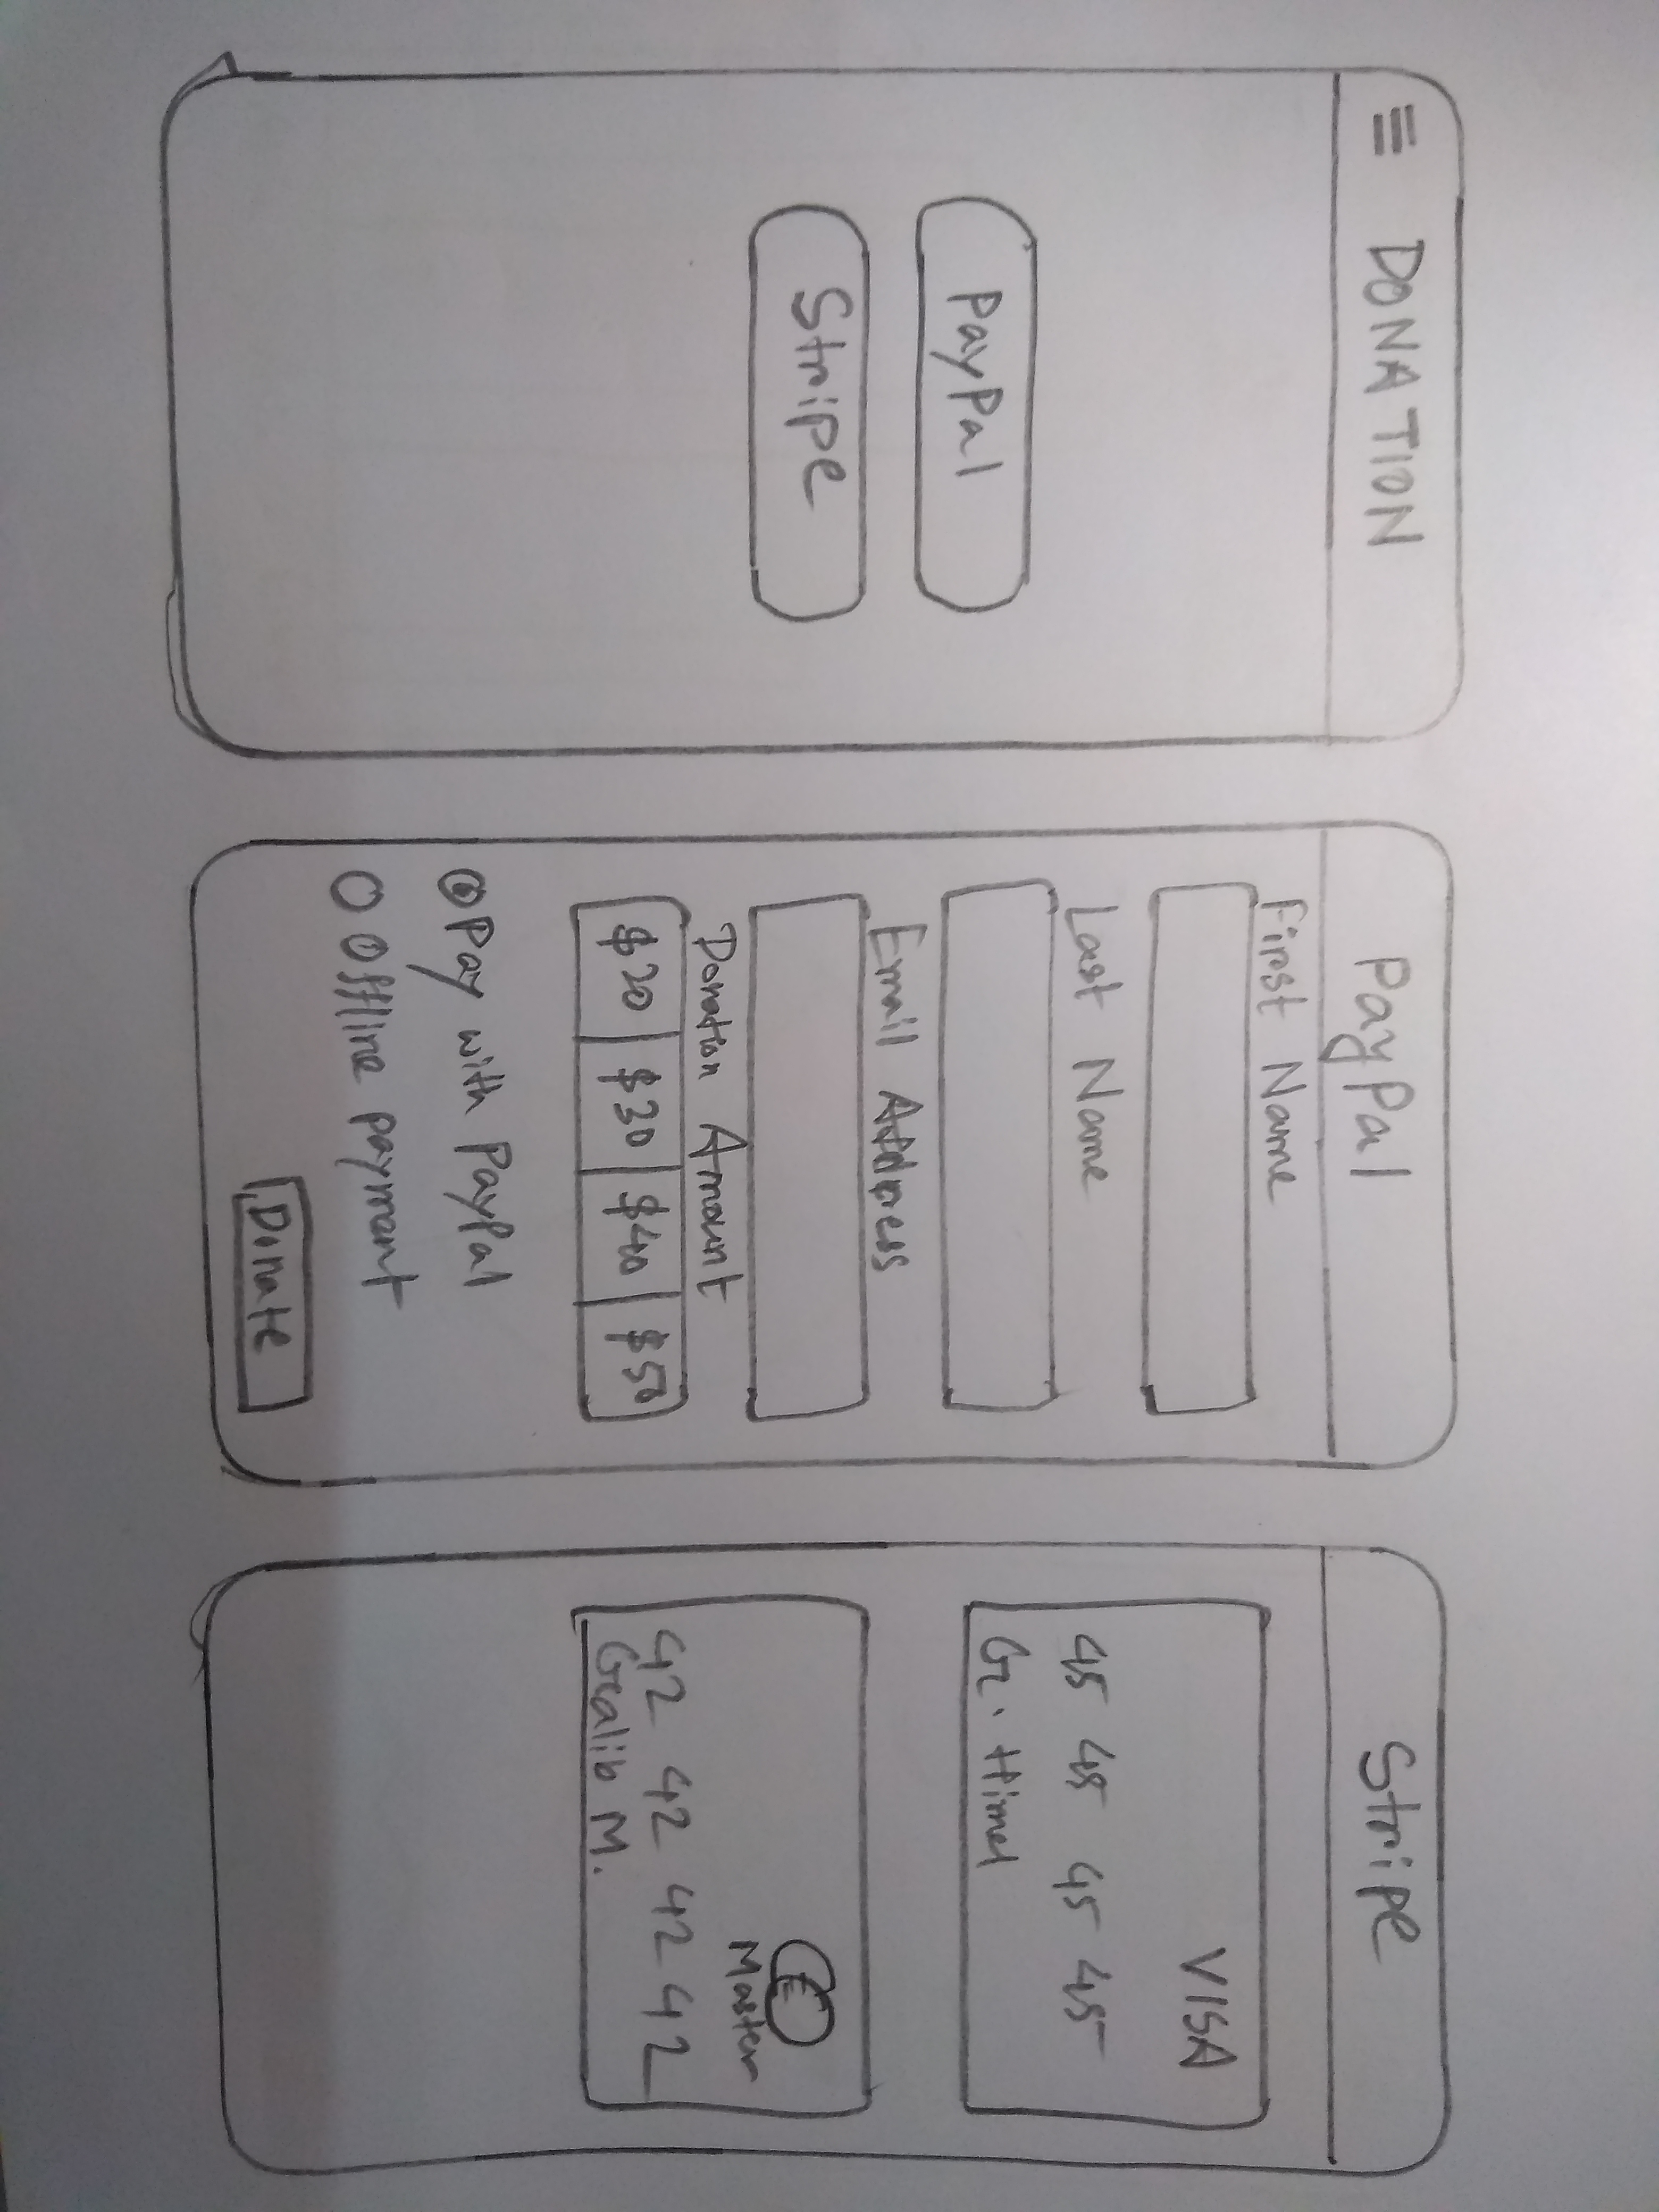 DONATION
PayPal
Stripe
PayPal
First Name
Last Name
Email Address
Donation Amount
$20 $30 $40 $50
Pay with PayPal
Offline payment
Donate
Stripe
VISA
45 45 45 45
G. Himel
Master
42 42 42 42
Galib M.